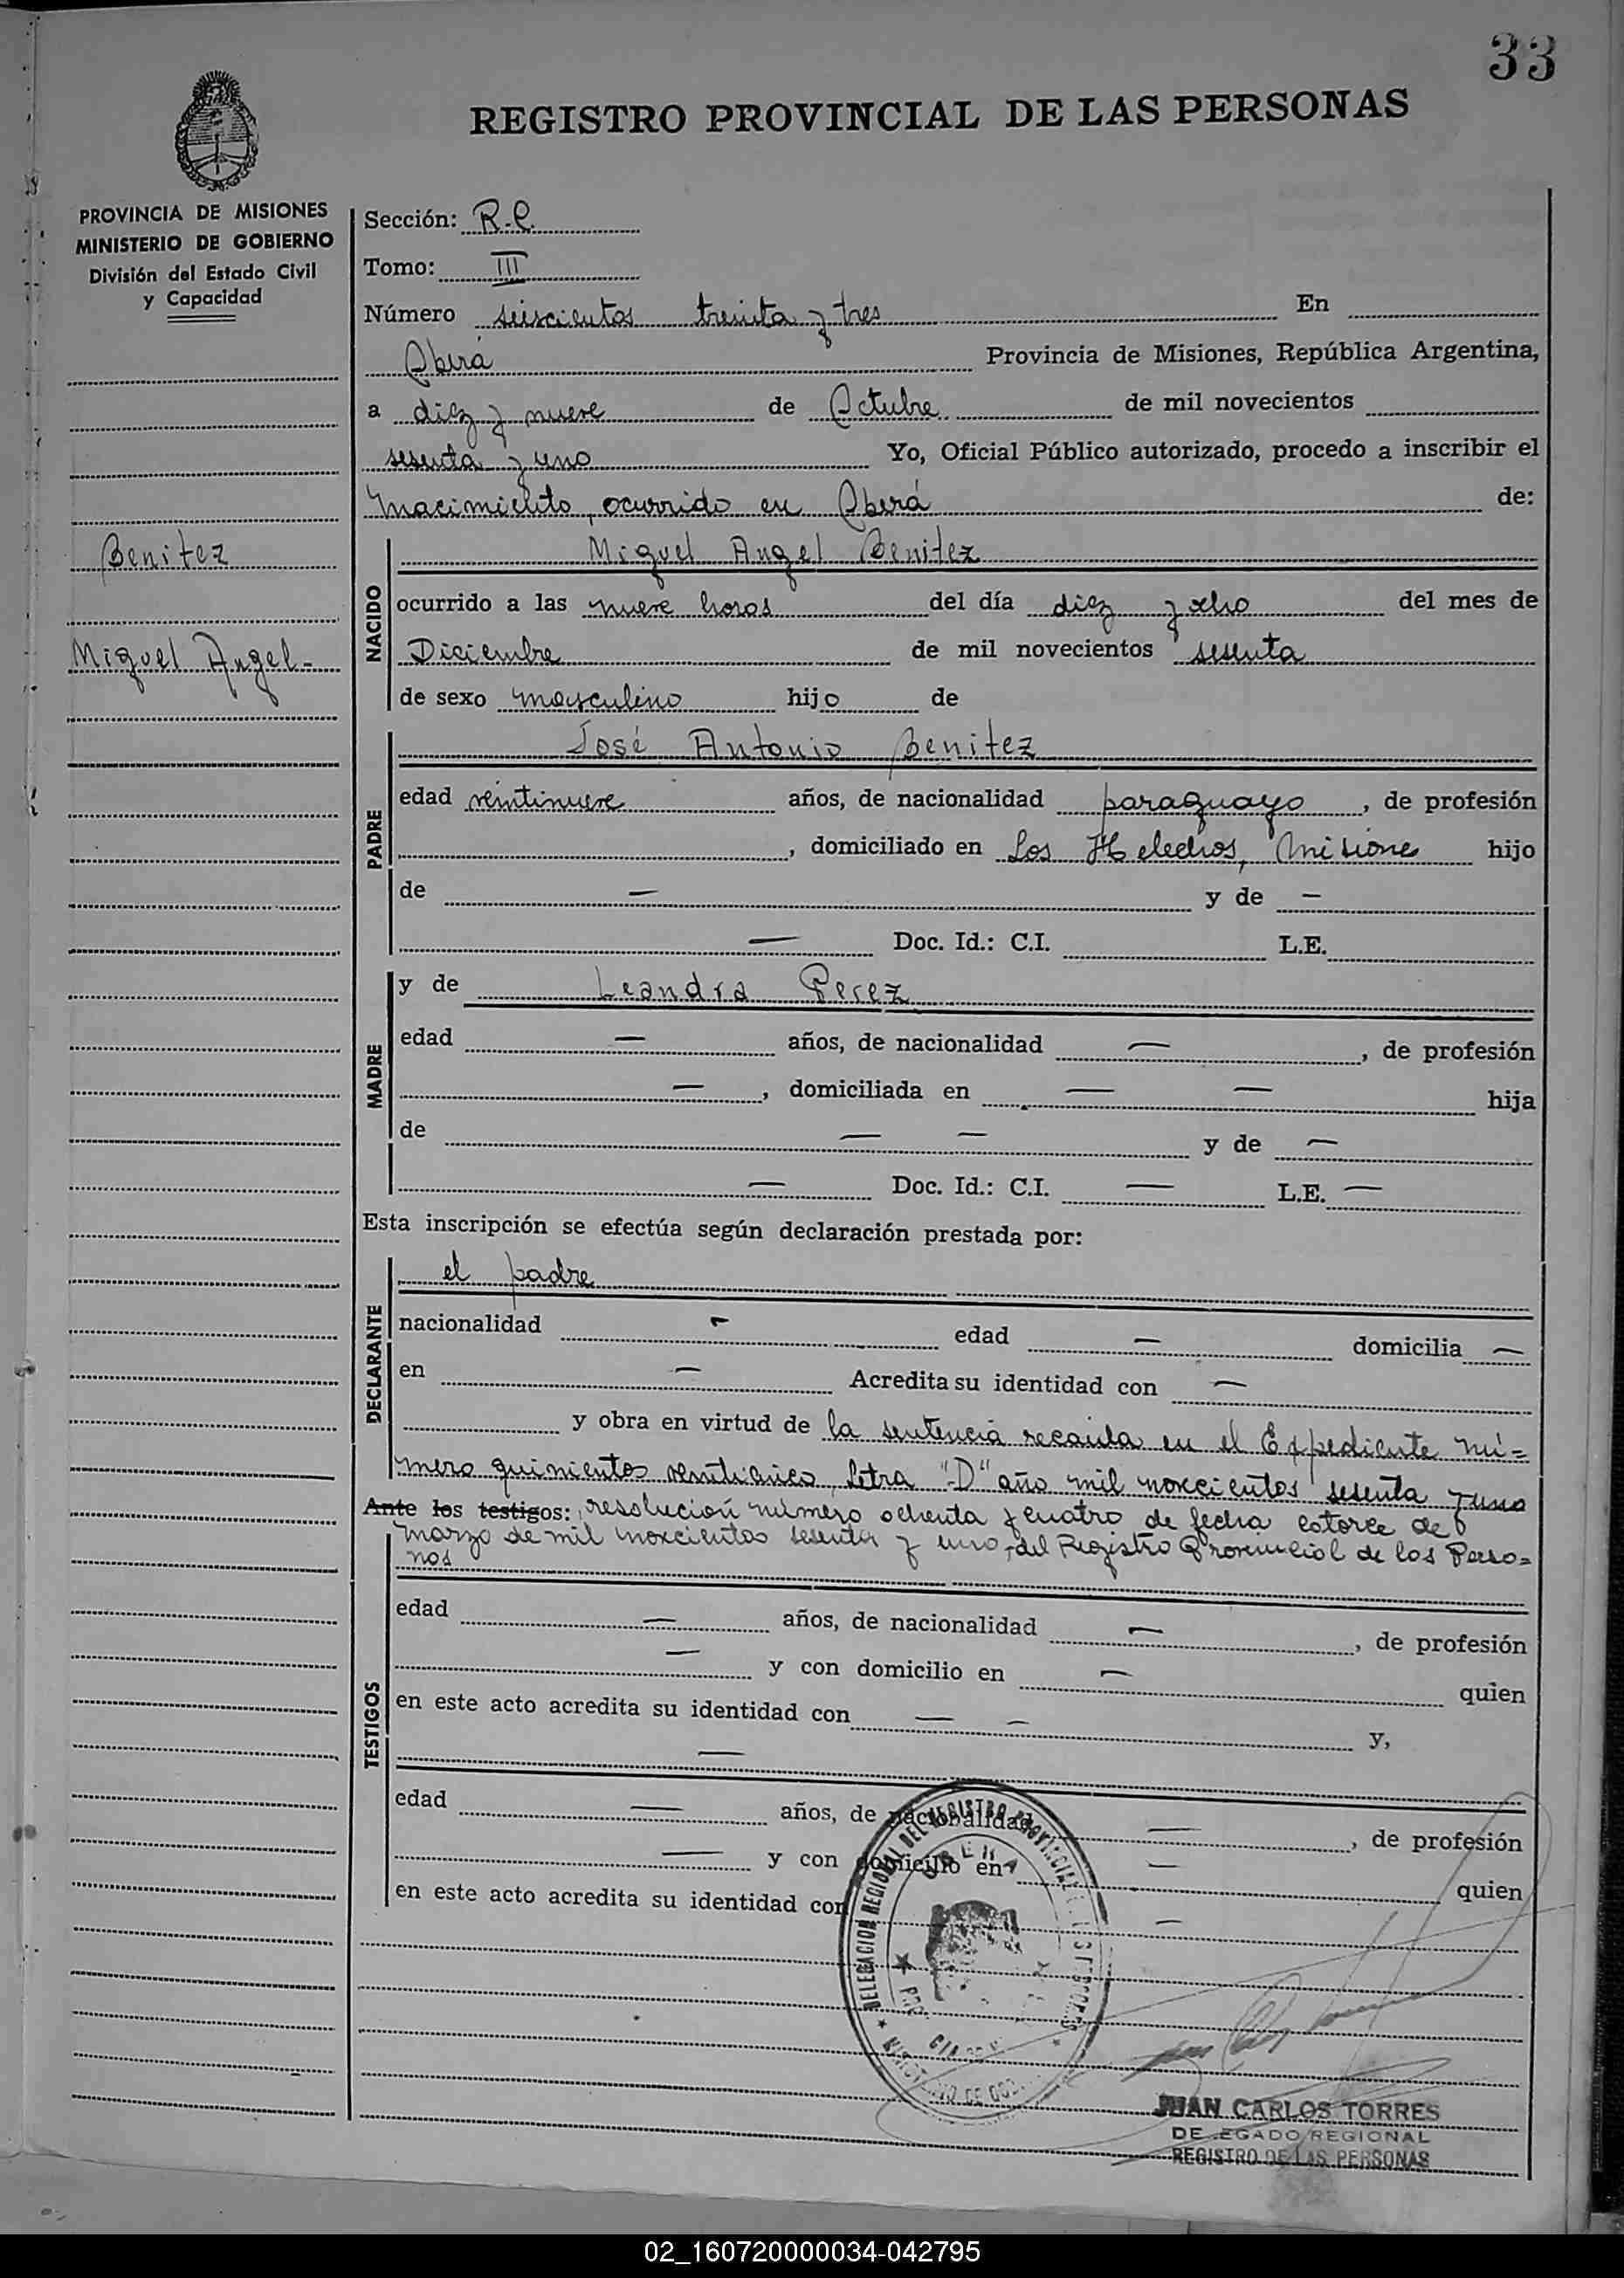 33
REGISTRO PROVINCIAL DE LAS PERSONAS
PROVINCIA DE MISIONES
MINISTERIO DE GOBIERNO
División del Estado Civil
y Capacidad
Benitez
Miguel Angel-
Sección: R.C.
Tomo: III
Número seiscientos treinta y tres En
Oberá Provincia de Misiones, República Argentina,
a diez y nueve de Octubre de mil novecientos
sesenta y uno Yo, Oficial Público autorizado, procedo a inscribir el
nacimiento, ocurrido en Oberá de:
NACIDO
Miguel Angel Benitez
ocurrido a las nueve horas del día diez y ocho del mes de
Diciembre de mil novecientos sesenta
de sexo masculino hijo de
PADRE
José Antonio Benitez
edad veintinueve años, de nacionalidad paraguayo, de profesión
, domiciliado en Los Helechos, Misiones hijo
de — y de —
— Doc. Id.: C.I. L.E.
MADRE
y de Leandra Perez
edad — años, de nacionalidad —, de profesión
—, domiciliada en — — hija
de — — y de —
— Doc. Id.: C.I. — L.E. —
Esta inscripción se efectúa según declaración prestada por:
DECLARANTE
el padre
nacionalidad — edad — domicilia —
en — Acredita su identidad con —
y obra en virtud de la sentencia recaída en el Expediente nú=
mero quinientos veinticinco, letra "D" año mil novecientos sesenta y uno
Ante los testigos: resolución número ochenta y cuatro de fecha catorce de
marzo de mil novecientos sesenta y uno, del Registro Provincial de las Perso=
nas
TESTIGOS
edad — años, de nacionalidad —, de profesión
— y con domicilio en — quien
en este acto acredita su identidad con — — y,
—
edad — años, de nacionalidad —, de profesión
— y con domicilio en — quien
en este acto acredita su identidad con —
DELEGACION REGIONAL DEL REGISTRO PROVINCIAL
JUAN CARLOS TORRES
DELEGADO REGIONAL
REGISTRO DE LAS PERSONAS
02_160720000034-042795